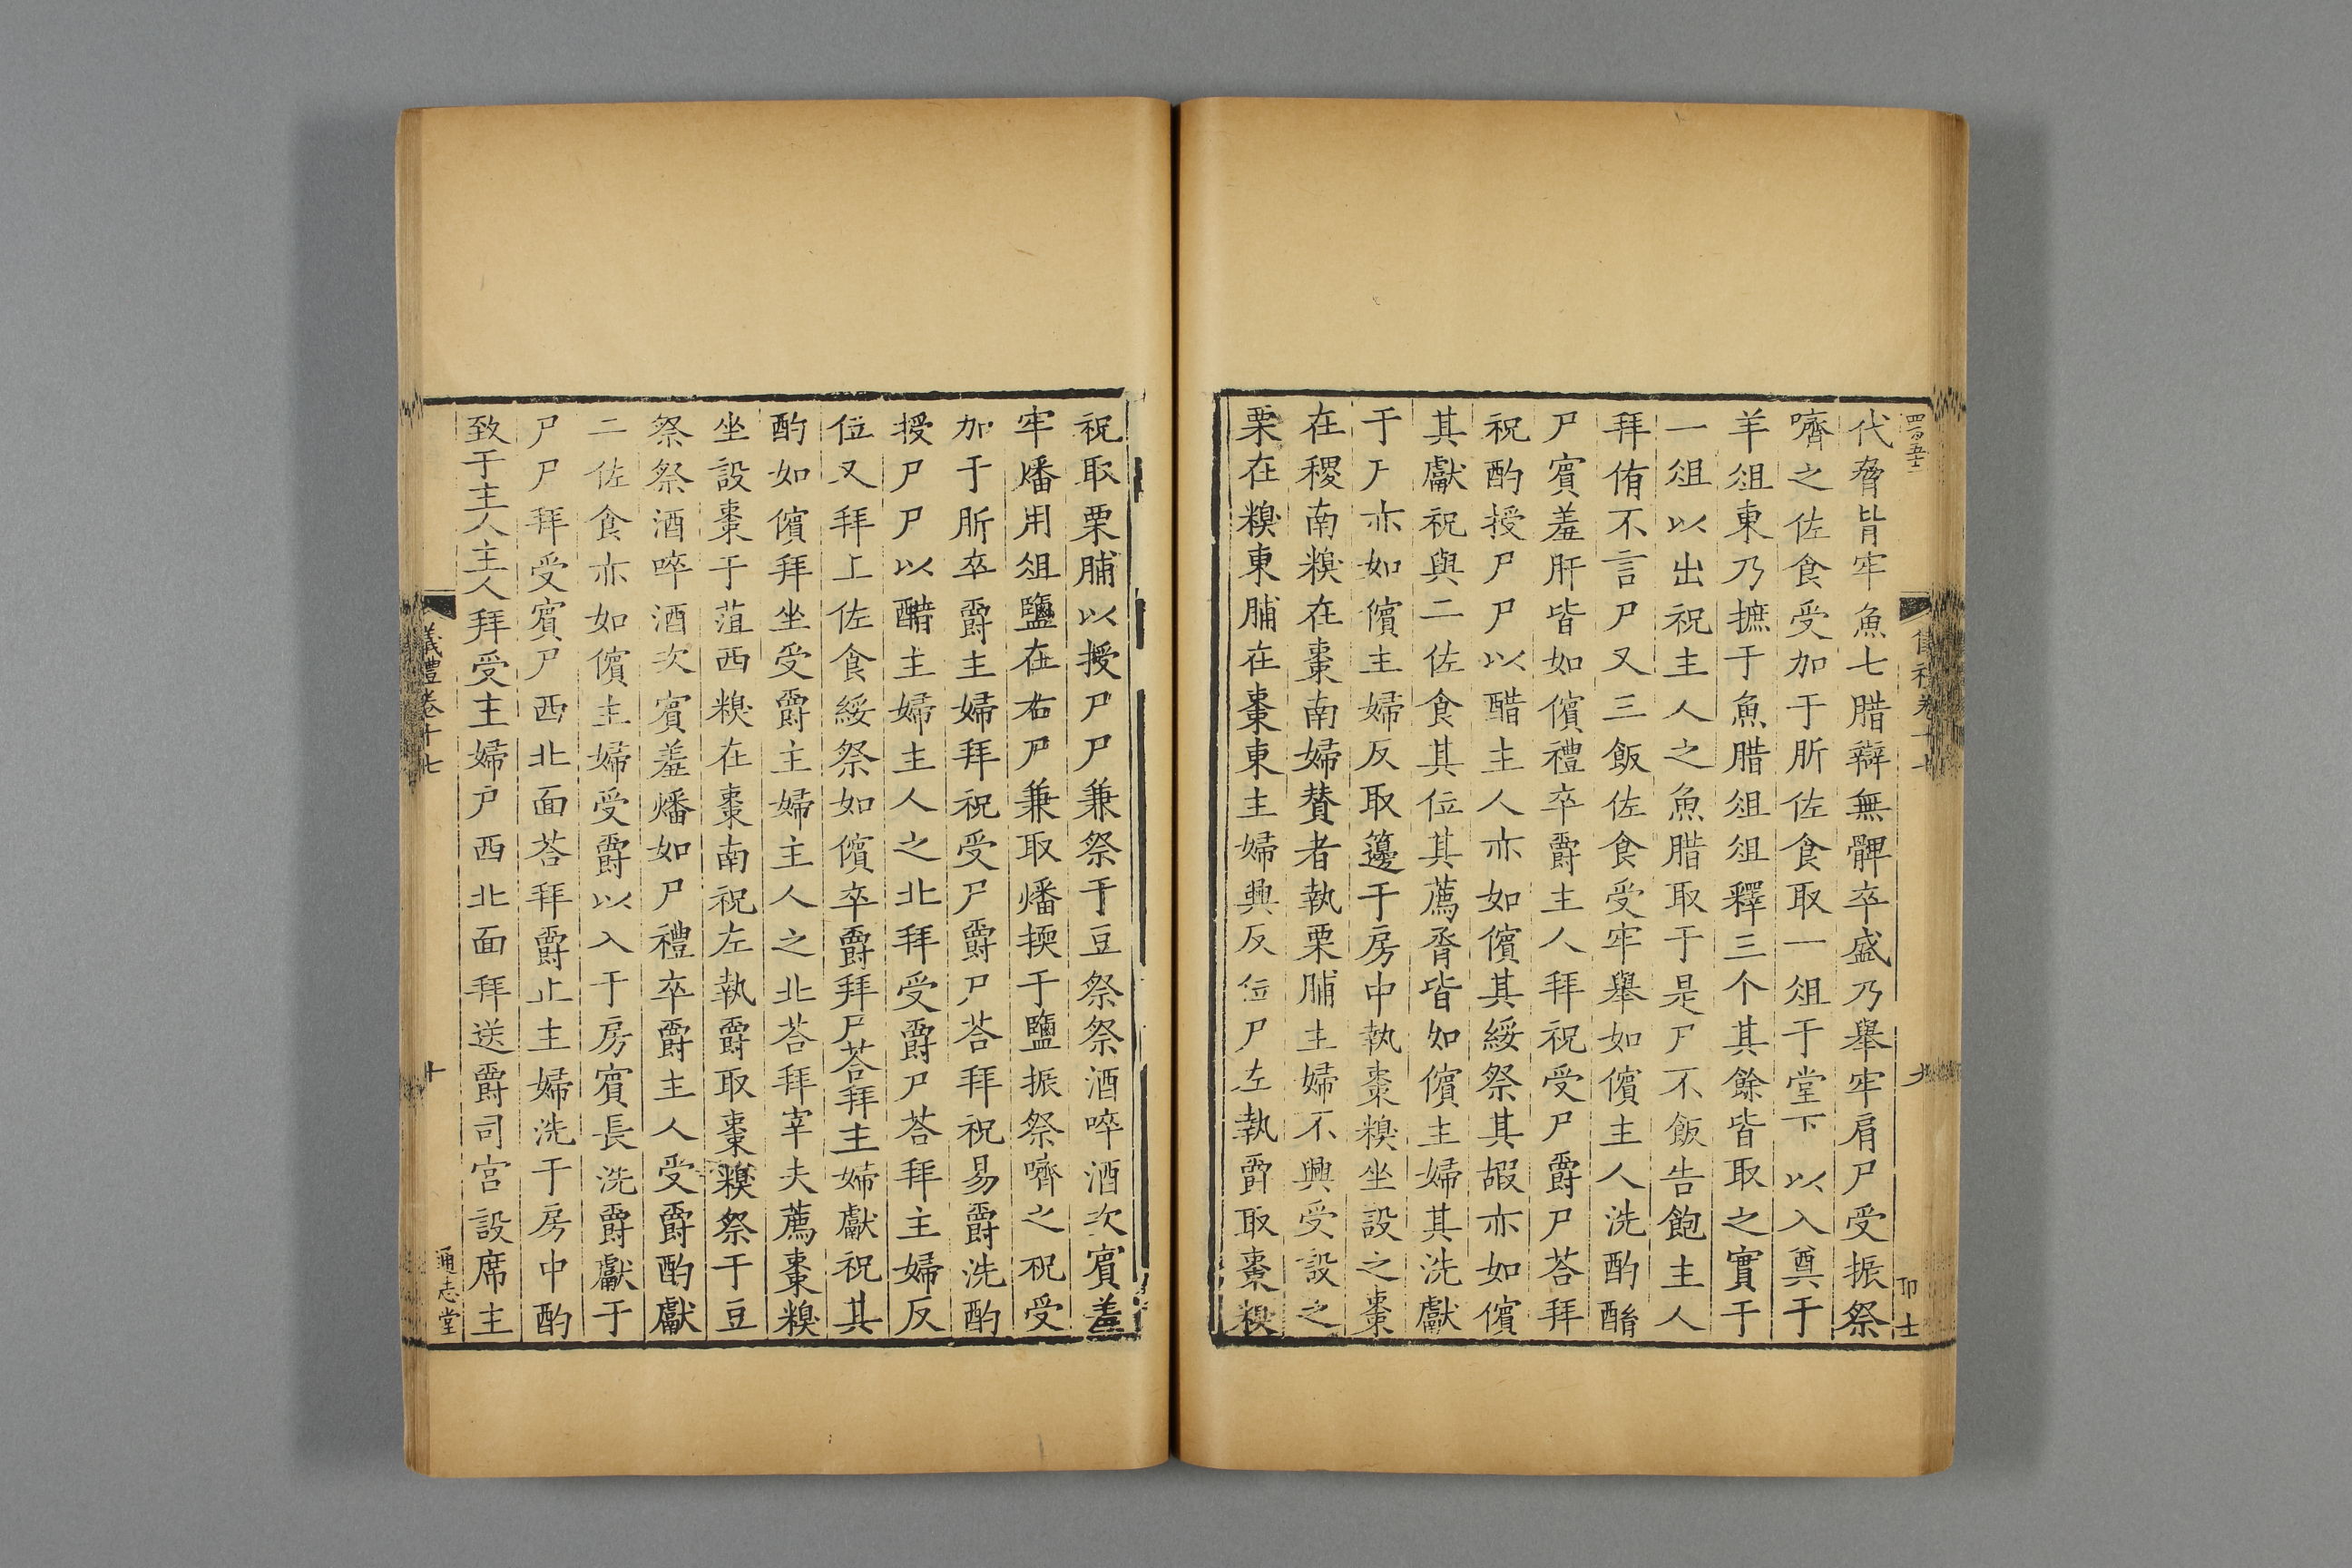 四百五十二
代脅皆牢魚七腊辯無髀卒盛乃舉牢肩尸受振祭
嚌之佐食受加于肵佐食取一俎于堂下以入奠于
羊俎東乃摭于魚腊俎俎釋三个其餘皆取之實于
一俎以出祝主人之魚腊取于是尸不飯告飽主人
拜侑不言尸又三飯佐食受牢舉如儐主人洗酌酳
尸賓羞肝皆如儐禮卒爵主人拜祝受尸爵尸荅拜
祝酌授尸尸以醋主人亦如儐其綏祭其嘏亦如儐
其獻祝與二佐食其位其薦脀皆如儐主婦其洗獻
于尸亦如儐主婦反取籩于房中執棗糗坐設之棗
在稷南糗在棗南婦贊者執栗脯主婦不興受設之
栗在糗東脯在棗東主婦興反位尸左執爵取棗糗
九
祝取栗脯以授尸尸兼祭于豆祭祭酒啐酒次賓羞
牢燔用俎鹽在右尸兼取燔擩于鹽振祭嚌之祝受
加于肵卒爵主婦拜祝受尸爵尸荅拜祝易爵洗酌
授尸尸以醋主婦主人之北拜受爵尸荅拜主婦反
位又拜上佐食綏祭如儐卒爵拜尸荅拜主婦獻祝其
酌如儐拜坐受爵主婦主人之北荅拜宰夫薦棗糗
坐設棗于菹西糗在棗南祝左執爵取棗糗祭于豆
祭祭酒啐酒次賓羞燔如尸禮卒爵主人受爵酌獻
二佐食亦如儐主婦受爵以入于房賓長洗爵獻于
尸尸拜受賓尸西北面荅拜爵止主婦洗于房中酌
致于主人主人拜受主婦户西北面拜送爵司宫設席主
儀禮卷十七
十
通志堂